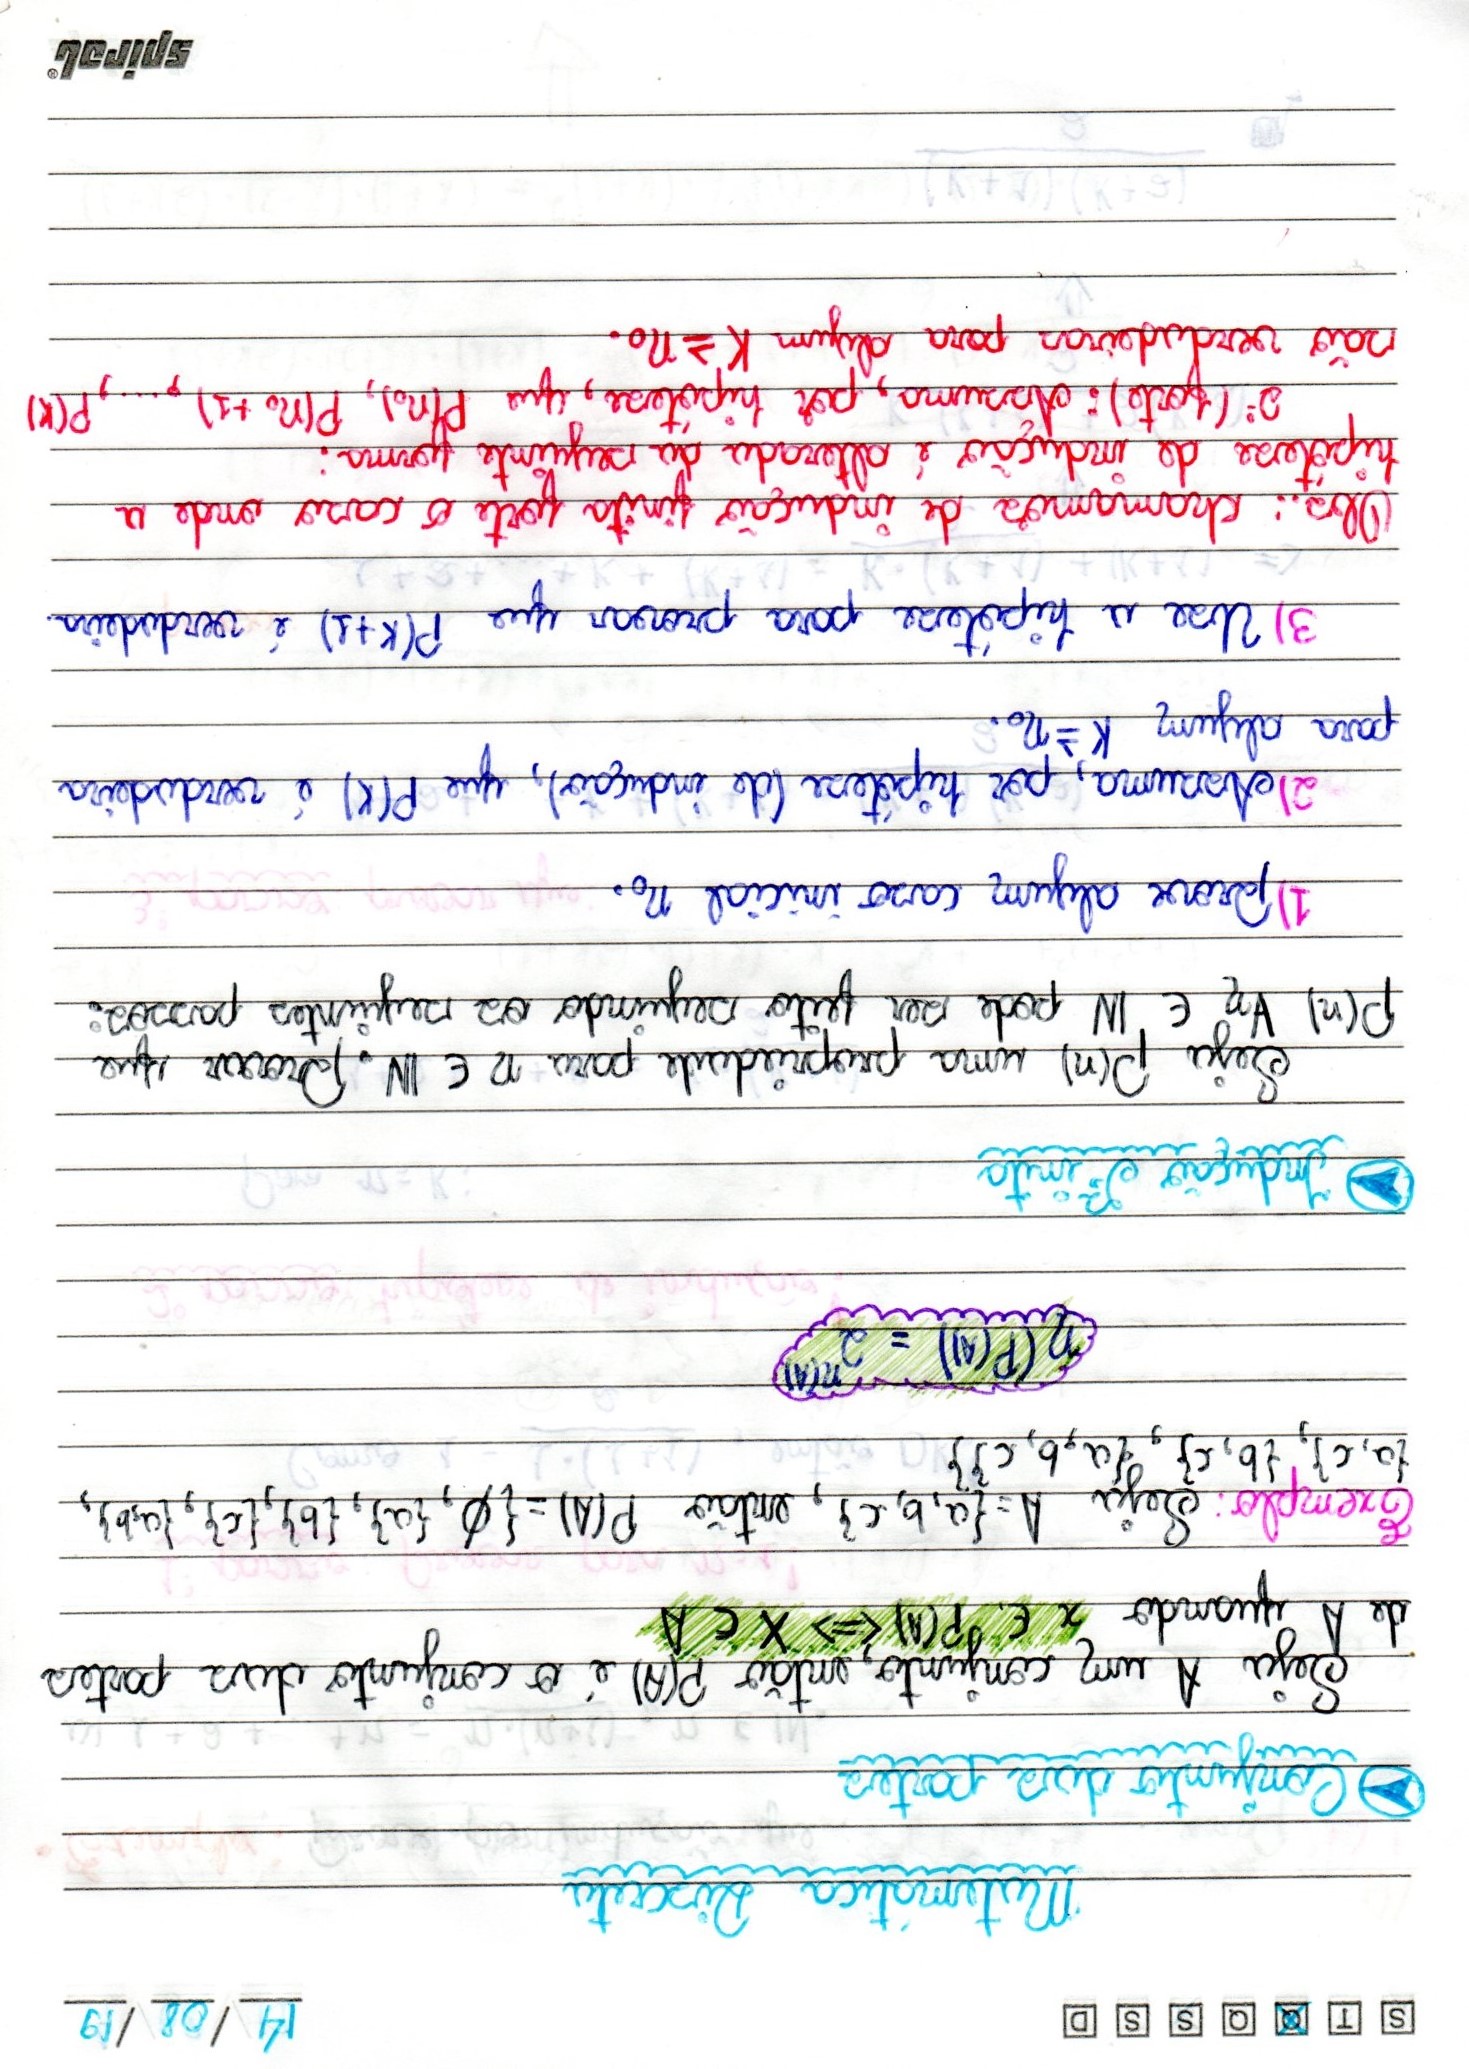 S T Q Q S S D
14 / 08 / 19
Matemática Discreta
Conjunto das partes
Seja A um conjunto, então P(A) é o conjunto das partes
de A quando x ∈ P(A) <=> X ⊂ A
Exemplo: Seja A={a,b,c}, então P(A)={∅, {a}, {b}, {c}, {a,b},
{a,c}, {b,c}, {a,b,c}}
n(P(A)) = 2^n(A)
Indução Finita
Seja P(n) uma propriedade para n ∈ IN. Provar que
P(n) ∀n ∈ IN pode ser feito seguindo os seguintes passos:
1) prove algum caso inicial n₀.
2) Assuma, por hipótese (de indução), que P(K) é verdadeira
para algum K ≥ n₀.
3) Use a hipótese para provar que P(K+1) é verdadeira
Obs.: chamamos de indução finita forte o caso onde a
hipótese de indução é alterada da seguinte forma:
2·(forte): Assuma, por hipótese, que P(n₀), P(n₀+1), ..., P(K)
são verdadeiras para algum K ≥ n₀.
spiral®